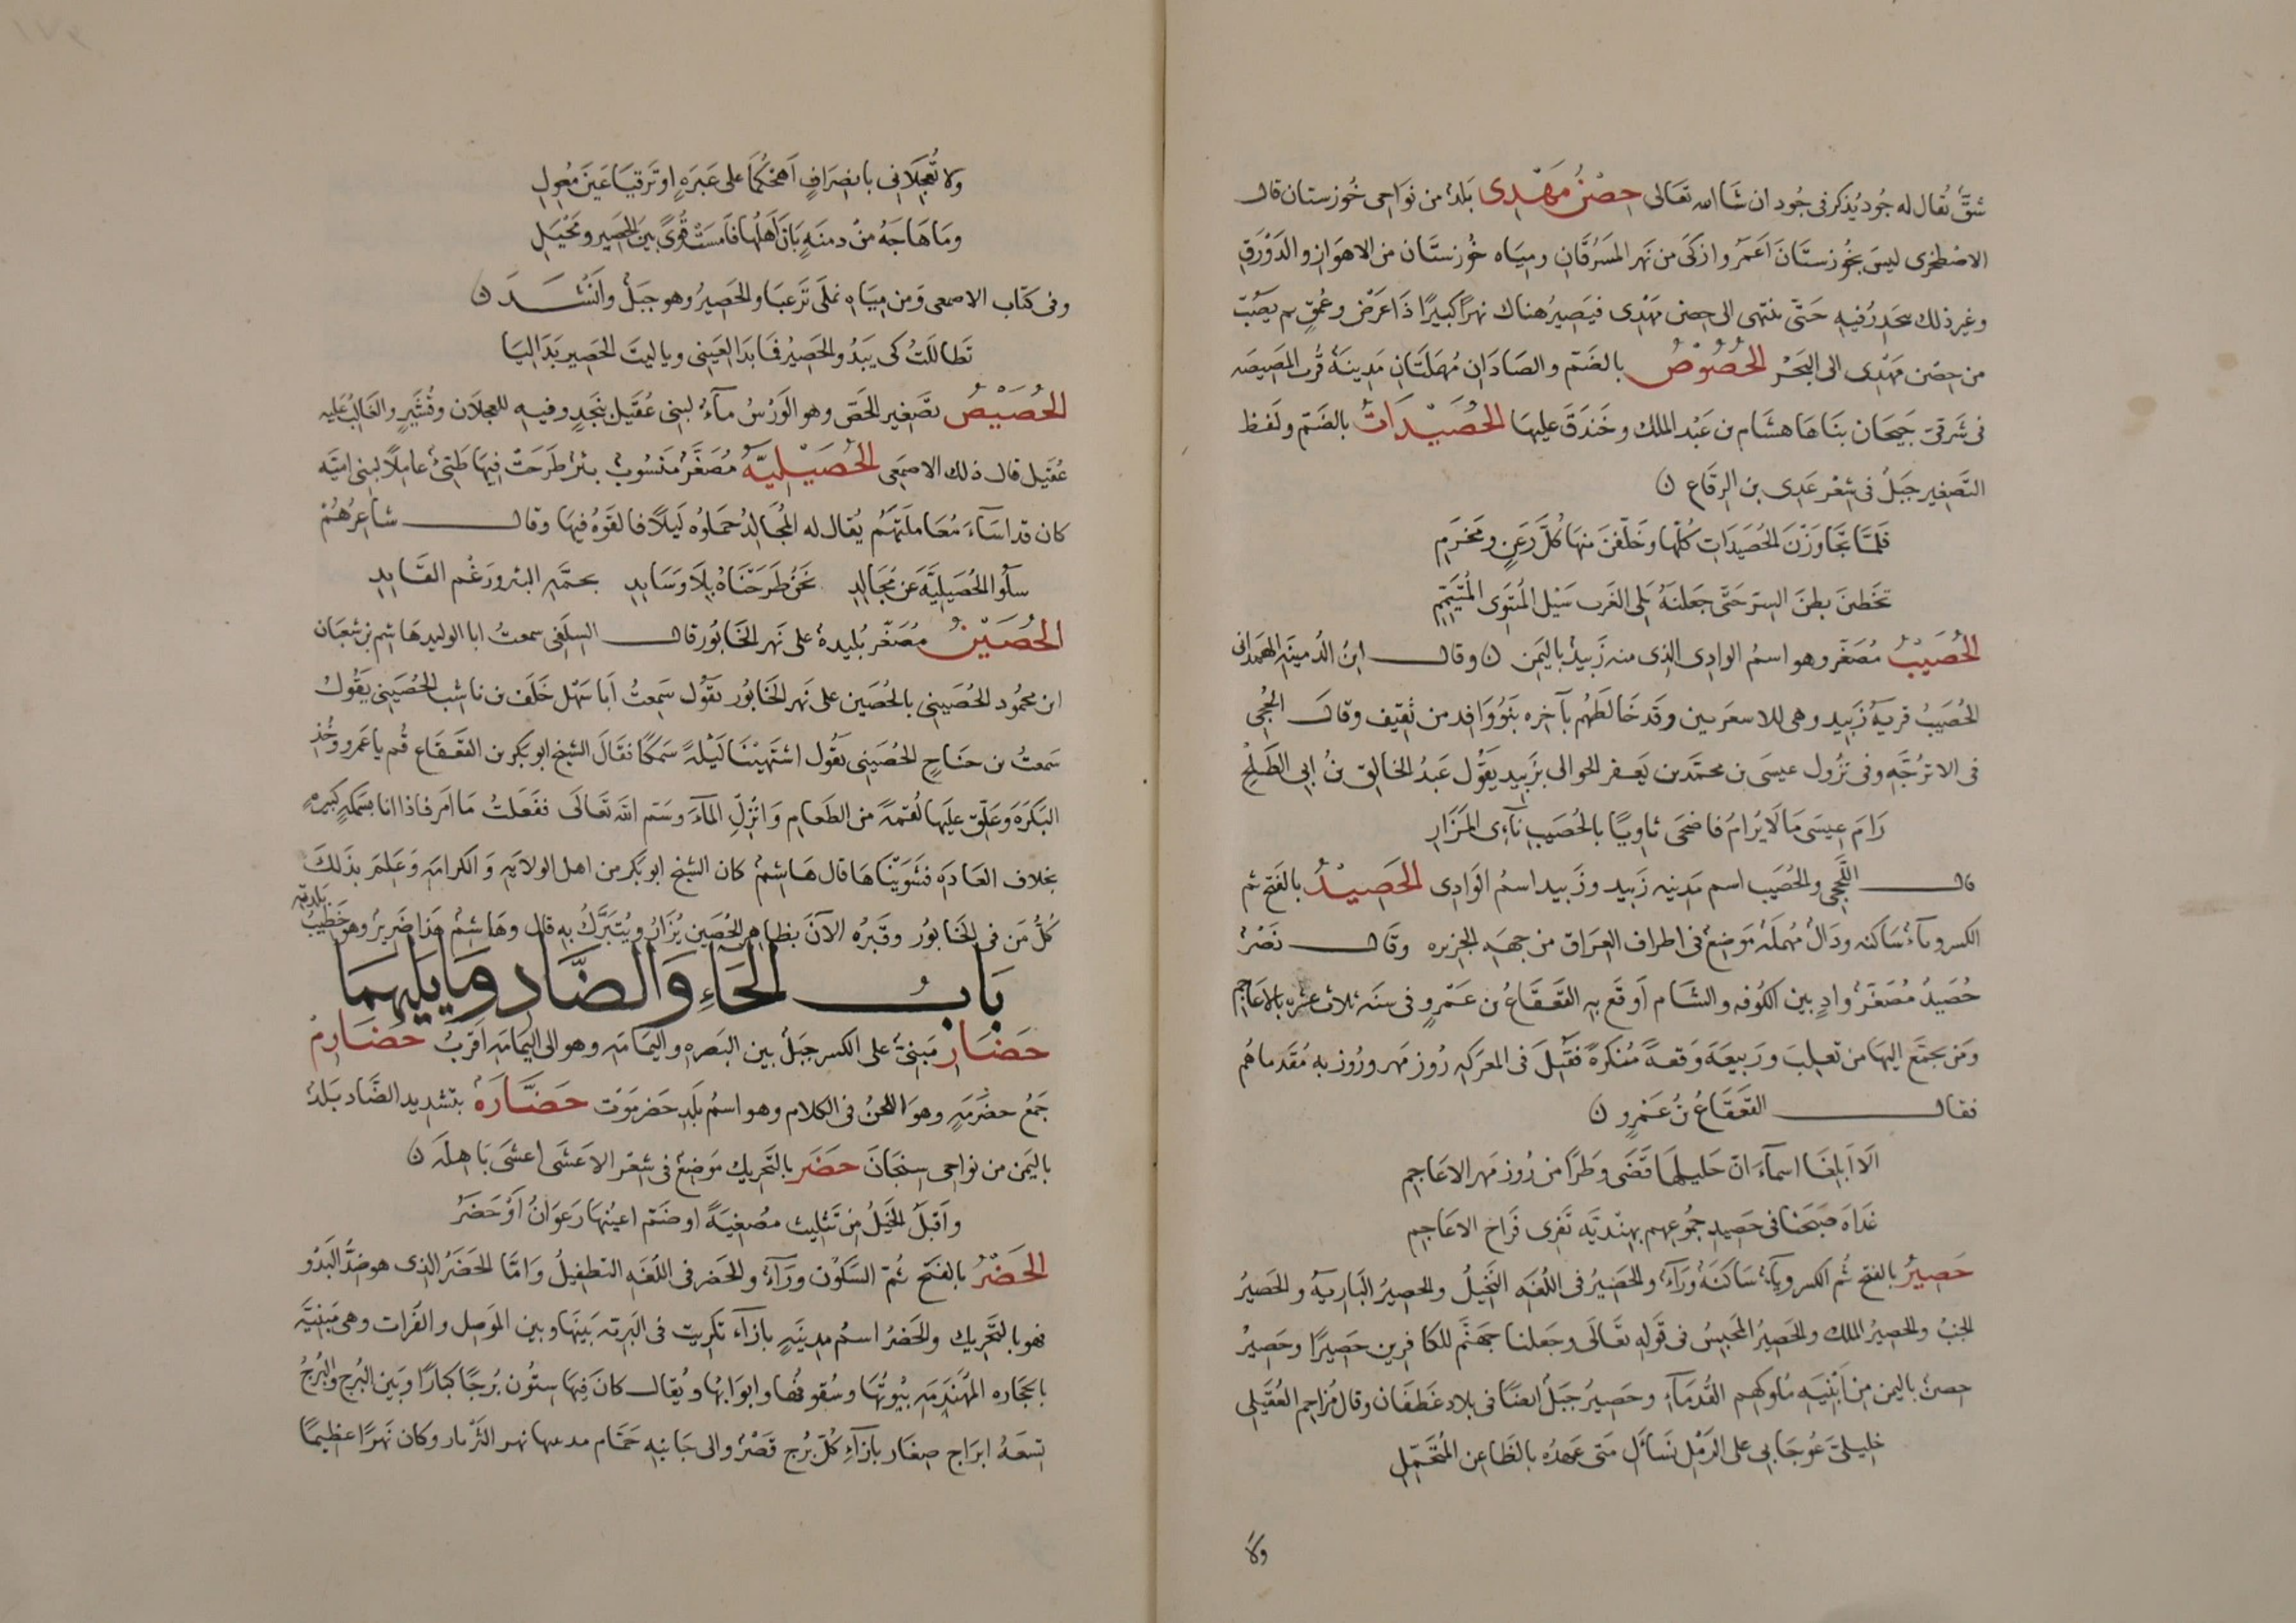 شقّ يُقال له جُود يُذكر فى جُود ان شَا الله تعَالى حِصْنُ مَهْدِى بَلدٌ من نوَاحِى خُوزستان قال
الاصْطَخرى ليسَ بخُوزستَانَ اَعمَرُ وازكَى من نَهر المَسرُقَانِ ومِيَاه خُوزستَان من الاهوَازِ والدَوْرَقِ
وغيرِ ذلك يحَدِرُ فيهِ حَتّى ينتهى الى حِصْن مَهْدى فيَصِيرُ هناك نهرًا كبيرًا ذَا عَرضٍ وعُمقٍ ثم يَصُبّ
من حِصْن مَهْدِى الى البَحْر الحُصُوصُ بالضَمّ والصَادَانِ مُهمَلتَانِ مَدِينَةٌ قُرب المَصِيصَه
فى شَرقىّ جَيحَان بَنَاهَا هِشَام بن عَبْد الملك وخَندَقَ عليهَا الحُصَيْدَاتُ بالضَمّ ولَفظ
التَصغير جَبلٌ فى شِعْر عَدِى بن الرِقَاع ن
فَلمّا تجَاوَزْنَ الحُصَيدَاتِ كُلّهَا وخَلّفنَ منهَا كُلّ رَعنٍ ومَخرَمِ
تخَطّينَ بطنَ السِرّ حَتّى جَعَلنَهُ يَلى الغَرب سَيْل المُنتَوَى المُتَيَمّمِ
الحُصَيْبُ مُصَغّر وهو اسمُ الوَادِى الذِى منه زَبيدُ باليَمن ن وقال ابنُ الدُمينَه الهَمدَانى
الحُصَيبُ قريَةُ زَبِيد وهى للاسعرىين وقَد خَالطَهُم بآخِرِه بَنُو وَافِد من ثَقِيف وقالَ الحجى
فى الاترُجّه وفى نزُول عيسَى بن محمّد بن يَعفر الحوالى بزَبِيد يَقُول عَبدُ الخالِق بنُ ابى الطَلح
رَامَ عِيسَى مَا لَا يُرَامُ فاضحَى ثاوِيًا بالحُصَيب نَآءِى المَزَارِ
قال اللّحجى والحُصَيب اسم مَدِينه زَبيد وزَبيد اسمُ الوَادِى الحَصِيْدُ بالفَتح ثم
الكسر ويآءٌ سَاكنه ودَالٌ مُهملَةٌ مَوضِعٌ فى اطراف العِرَاق من جهَه الجزيره وقال نَصْرٌ
حُصَيدُ مُصَغّرٌ وادٍ بين الكُوفه والشَام اَوقَع بهِ القَعقَاعُ بن عَمْرٍو فى سنَه ثلاث عشره بالاعَاجم
ومَن تجمّعَ اليهَا من تَعلِبَ ورَبيعَهَ وَقعةً مُنكَرةً فقُتِلَ فى المعرَكه رُوزمَهر ورُوزبه مُقَدماهُم
فقال القَعْقَاعُ بنُ عَمْرٍو ن
اَلَا اَبلِغَا اسمآءَ انّ حَلِيلهَا قَضَى وطَرًا من رُوزمَهر الاعَاجِمِ
غدَاه صَبَحنَا فى حَصِيدٍ جُمُوعهم بهنْديّهٍ تَفرِى فرَاخ الاعَاجِمِ
حَصِيْرُ بالفتح ثم الكسر ويآءٌ سَاكنَةٌ ورَآءٌ والحَصِيرُ فى اللُغَه البَخِيلُ والحصِيرُ البَاريةُ والحَصيرُ
الجنبُ والحصِيرُ الملك والحَصِيرُ المَحبِسُ فى قَولهِ تعَالَى وجَعلنا جهَنَّم للكافرِين حَصِيرًا وحَصِيرُ
حِصنٌ باليمن من اَبْنيَهِ مُلوكِهم القُدمَآءِ وحَصِيرُ جَبلٌ ايضًا فى بلاد غَطفَان وقال مُزاحِم العُقَيلى
خلِيلىّ عُوجَا بى على الرَمْلِ نَسأل مَتى عَهدُه بالظَاعِنِ المُتَحَمِّلِ
ولا
ولا تُعجِلَانى بانصِرَافٍ اَهجكُمَا على عَبرَهٍ او تَرقيَا عَينَ مُعوِلِ
ومَا هَاجَهُ من دمنَهٍ بَانَ اَهلُهَا فاَمسَتْ قُوًى بينَ الحَصِير ومحْيَلِ
وفى كتَاب الاصمعى وَمن مِيَاه نملَى تَرعبَا والحَصِيرُ وهو جَبلٌ وانَشَدَ ن
تَطالَلتُ كى يَبدُو الحَصِيرُ فمَا بَدَا لعَينى ويا ليتَ الحَصِير بَدَا ليَا
الحُصَيْصُ تصَغير الحَصّ وهو الوَرْسُ مآءٌ لبنى عُقَيل بنَجدٍ وفيه للعجلان وقُشَيرٍ والغَالبُ عليه
عُقَيل قال ذلك الاصمَعى الحُصَيْلِيَّةُ مُصَغّرٌ مَنسُوبٌ بئرٌ طَرحَتْ فيهَا طَيّئٌ عاملًا لبنى اميّه
كان قد اسَآءَ مُعَاملَتَهُم يُقال له المُجَالِدُ حمَلوُه لَيلًا فالقَوهُ فيهَا وقال شاعِرُهُمْ
سَلُوا الحُصَيلِيَّهَ عَن مُجَالِدِ نحَنُ طَرَحْنَاهُ بلَا وَسَايدِ بحمَّهِ البئر ورَغْم القَايِدِ
الحُصَيْنُ مُصَغّر بُليدةٌ على نَهر الخَابُور قال السِلَفى سمعتُ ابا الوليد هَاشم بن شعبَان
ابن محمُود الحُصَينى بالحُصَين على نَهر الخَابُور يقَوُل سَمِعتُ اَبا سَهْل خَلَف بن ناشب الحُصَينى يقُول
سَمعتُ بن جنَاحٍ الحُصَينى يقُول اشتَهَيْنَا لَيْلةً سَمكًا فقالَ الشيخ ابوبكر بن القَعقَاع قُم يا عَمرو وَخُذ
البَكَرَه وعَلّق عليَها لُقمَةً من الطَعَام وَانزل المآءَ وسَمّ الله تعَالَى ففَعلتُ مَا امَر فاذا انا بسَمكهٍ كبيرهٍ
بخلاف العَادَه فشَوَيْنَاهَا قال هَاشِمٌ كان الشيخ ابوبكر من اهل الولَايهِ وَالكَرامَهِ وَعَلِمَ بذَلكَ
كُلّ مَن فى الخَابُور وقَبرُه الآنَ بظاهِر الحُصَين يُزَارُ ويُتبَرَّكُ بهِ قال وهَاشِمٌ هَذا ضَرِيرٌ وهو خَطِيبُ بلدته
بَابُ الحَاءِ وَالضَّادِ وَمَا يَلِيهِمَا
حَضَارِ مَبنىٌّ على الكسر جَبلٌ بين البَصره واليَمامَه وهو الى اليَمامَه اَقربُ حَضَارِمُ
جَمعُ حضْرَمَهٍ وهوَ اللّحنُ فى الكلام وهو اسمُ بَلَدِ حَضرمَوْت حَضَّارَةُ بتشدِيد الضَّاد بَلدٌ
باليَمن من نوَاحى سِنحَانَ حَضَر بالتَحرِيك مَوضِعٌ فى شعْر الاَعشَى اعشَى بَاهِلَه ن
واَقبلَ الخيلُ مِن تَثليث مُصغِيَةً او ضَمّ اعيُنهَا رَعوَانُ اَوْ حَضَرُ
الحَضْرُ بالفَتح ثُمّ السّكُون ورَآءٌ والحَضر فى اللُغَه التطفِيلُ وَامّا الحَضَرُ الذِى هو ضِدُّ البَدْو
فهو بالتَحرِيك والحَضرُ اسمُ مدِينَهٍ بازَآءِ تكرِيت فى البَريّه بَينَهَا وبين الموَصِل والفُرات وهى مَبنيَّه
بالحجَاره المُهَندَمَهِ بيُوتُهَا وسُقوفُها وابوَابُها ويُقال كانَ فيهَا ستُون بُرجًا كبَارًا وبَين البُرج والبُرجُ
تسعَةُ ابرَاج صغَار بازَآءِ كُلّ بُرج قَصْرٌ والى جَانبهِ حَمّام نهر الثَرْثار وكان نَهرًا عظِيمًا